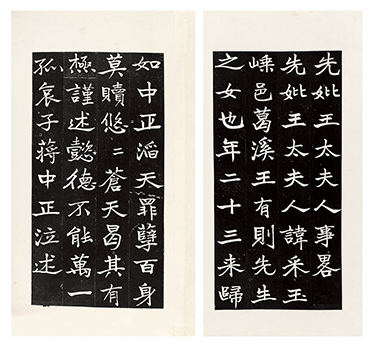 先妣王太夫人事畧
先妣王太夫人諱采玉
嵊邑葛溪王有則先生
之女也年二十三来歸
如中正滔天罪孽百身
莫贖悠〻蒼天曷其有
極謹述懿德不能萬一
孤哀子蔣中正泣述